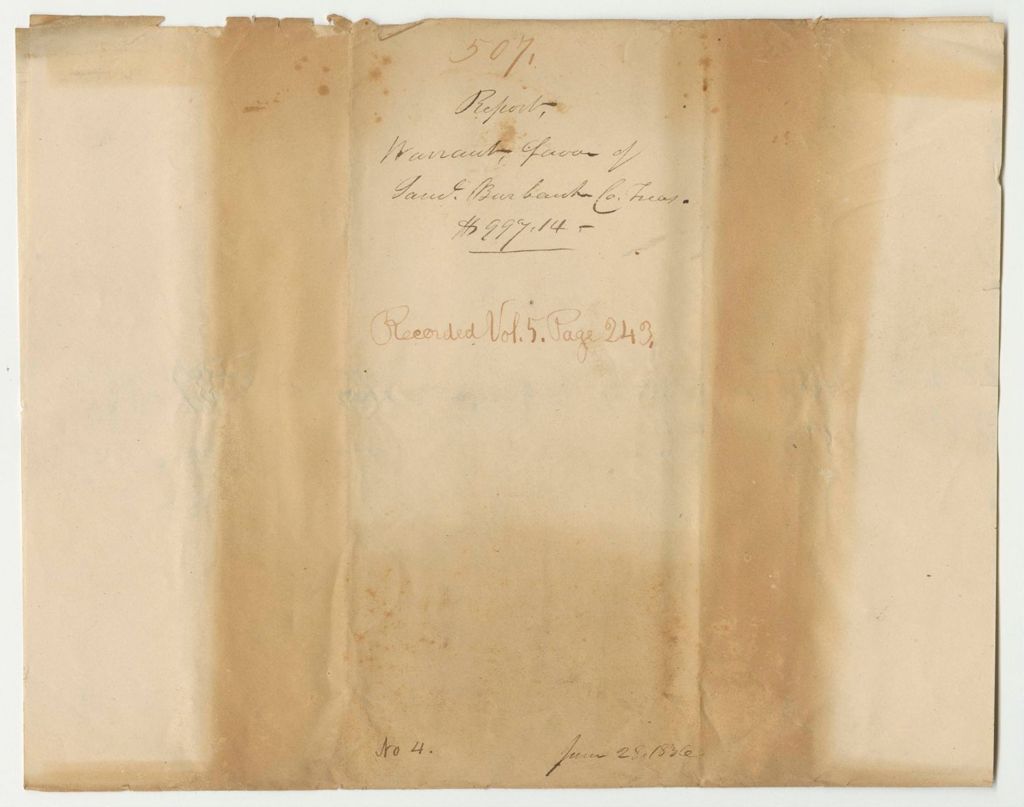 507.
Report,
Warrant, favor of
Saml. Burbank Co. Treas.
$997.14 -
Recorded Vol. 5. Page 243,
No 4.
June 28, 1836